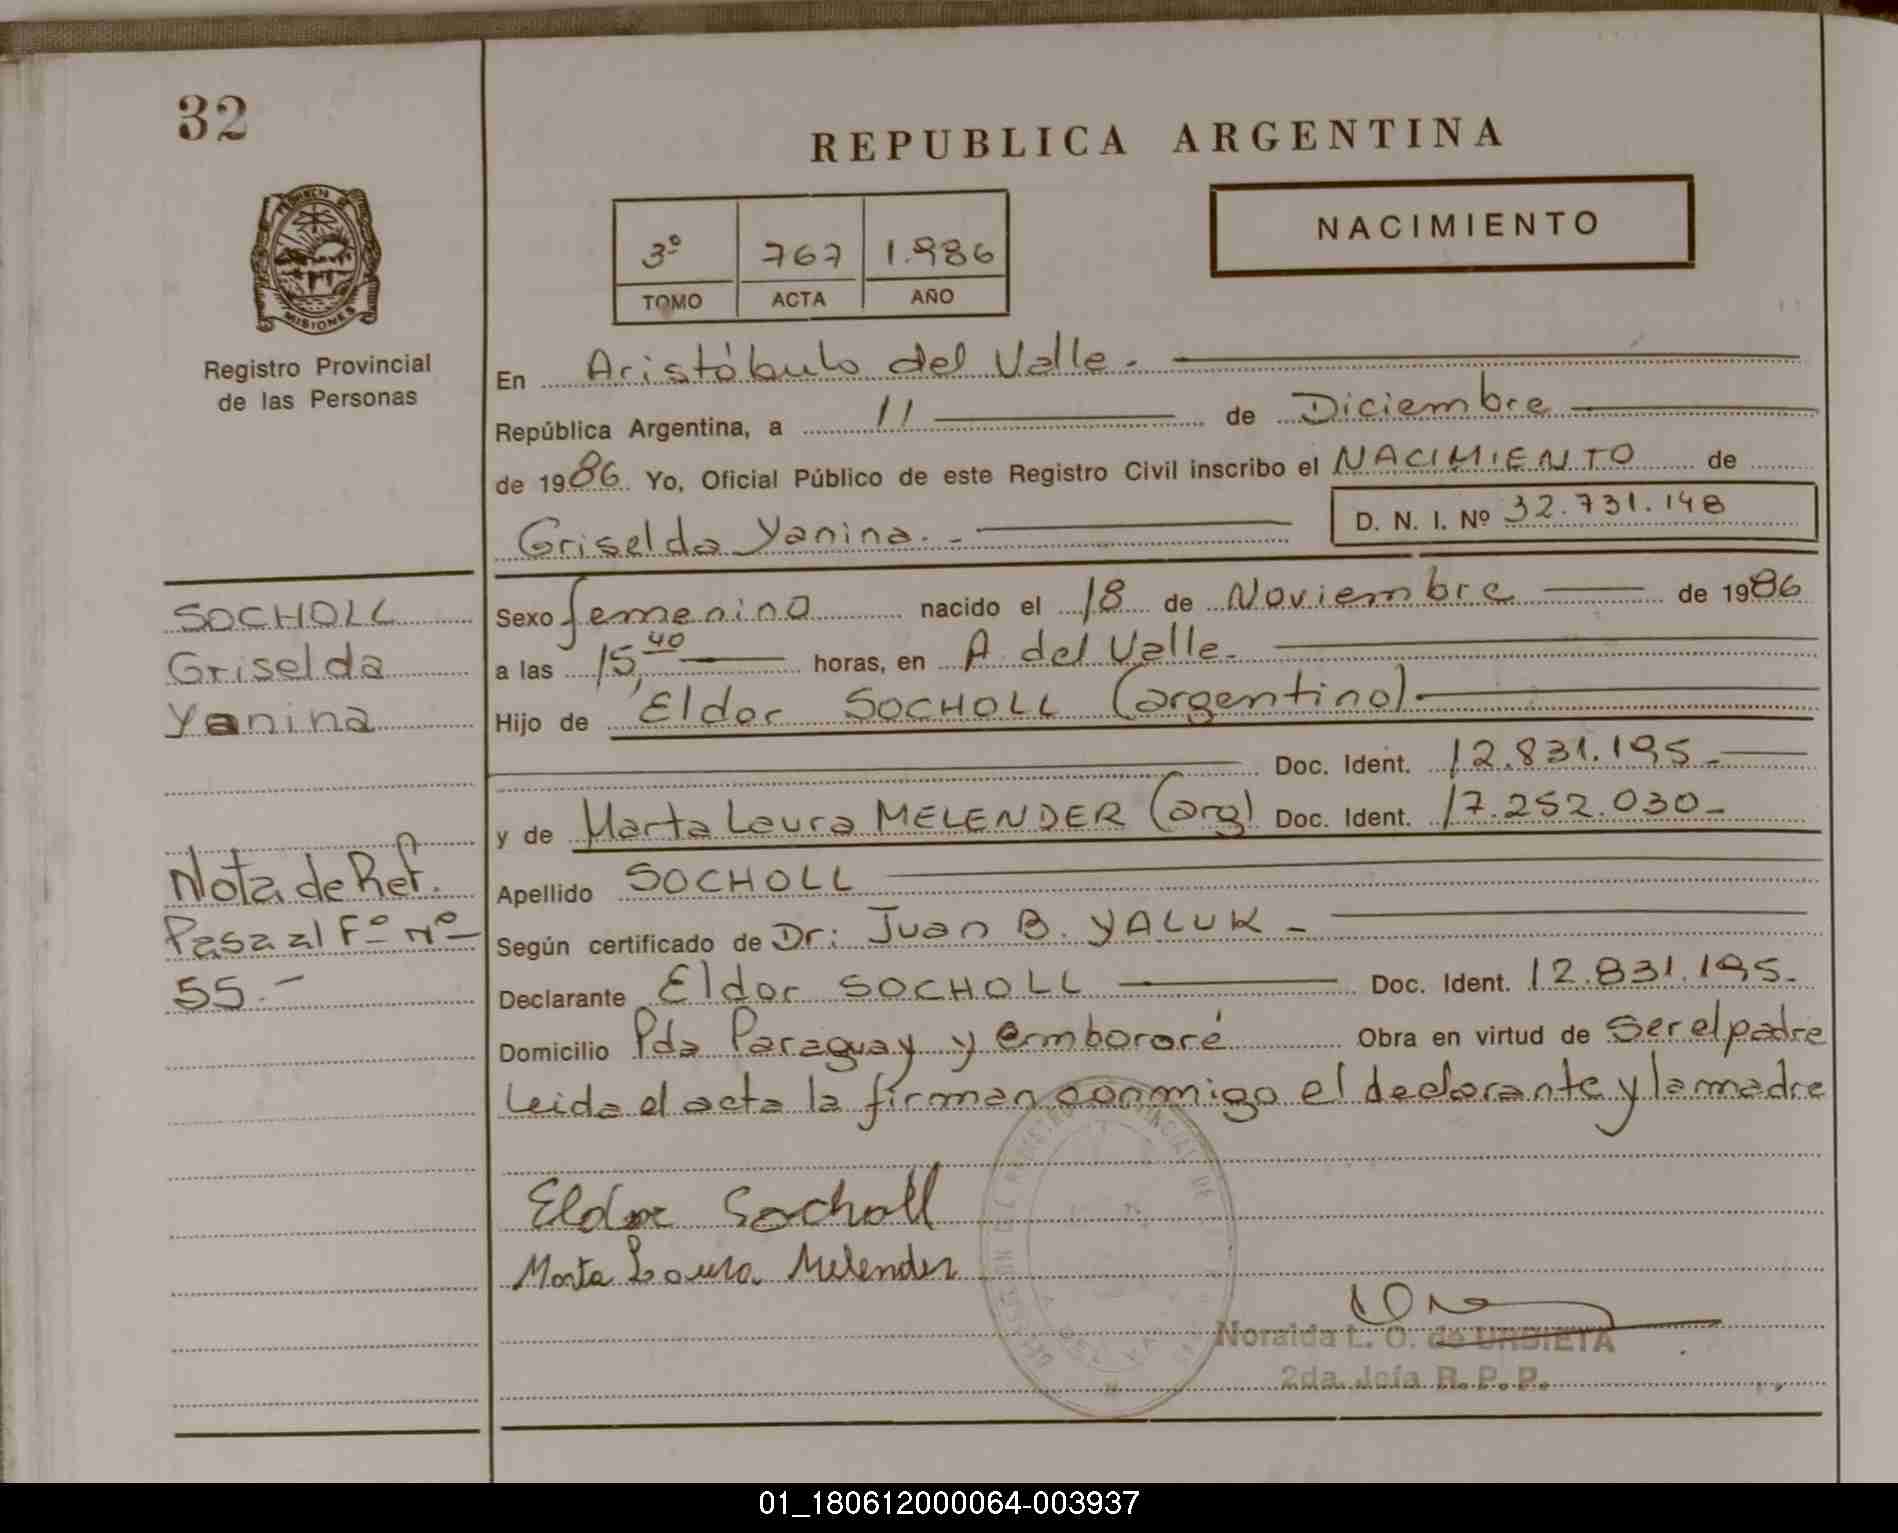 32
REPUBLICA ARGENTINA
NACIMIENTO
3º 767 1.986
TOMO ACTA AÑO
MISIONES
Registro Provincial
de las Personas
En Aristóbulo del Valle.
República Argentina, a 11 de Diciembre
de 1986 Yo, Oficial Público de este Registro Civil inscribo el NACIMIENTO de
Griselda Yanina.- D. N. I. Nº 32.731.148
SOCHOLL
Griselda
Yanina
Sexo femenino nacido el 18 de Noviembre de 1986
a las 15,40 horas, en A del Valle.
Hijo de Eldor SOCHOLL (argentino)
Doc. Ident. 12.831.195-
y de Marta Laura MELENDER (arg) Doc. Ident. 17.252.030-
Apellido SOCHOLL
Según certificado de Dr: Juan B. YALUK -
Declarante Eldor SOCHOLL Doc. Ident. 12.831.195-
Domicilio Pda Paraguay y embororé Obra en virtud de ser el padre
Leida el acta la firman conmigo el declarante y la madre
Nota de Ref.
Pasa al Fº Nº
55.-
Eldor Socholl
Marta Laura Melender
Noraida L. O. de URBIETA
2da. Jefa R. P. P.
01_180612000064-003937